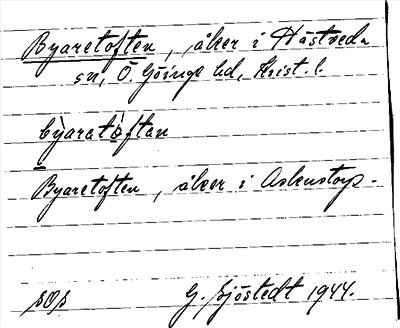 Byaretoften, åker i Hästveda
sn, Ö. Göinge hd, Krist. l.
by̆aratòftan
Byaretoften, åker i Askenstorp.
G. Sjöstedt 1944.